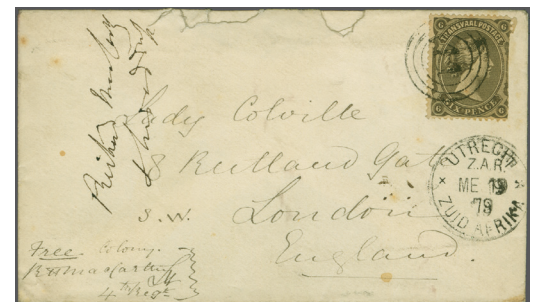 TRANSVAAL POSTAGE
SIX PENCE
Lady Colville
8 Rutland Gate
S.W.
London
England.
UTRECHT
Z.A.R.
ME 19
79
ZUID AFRIKA
Free
4th Regt